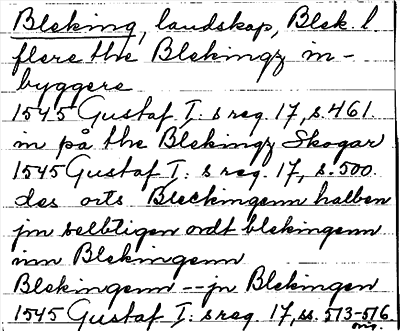 Bleking, landskap, Blek. l.
flere the Blekingz in-
byggere
1545 Gustaf I: s reg. 17, s. 461.
in på the Blekingz Skogar
1545 Gustaf I: s reg. 17, s. 500.
des orts Bleckingenn halben
jm selbtigen ordt blekingenn
inn Blekingenn
Blekingenn -- jn Blekingen
1545 Gustaf I: s reg. 17, ss. 513-516
orig.